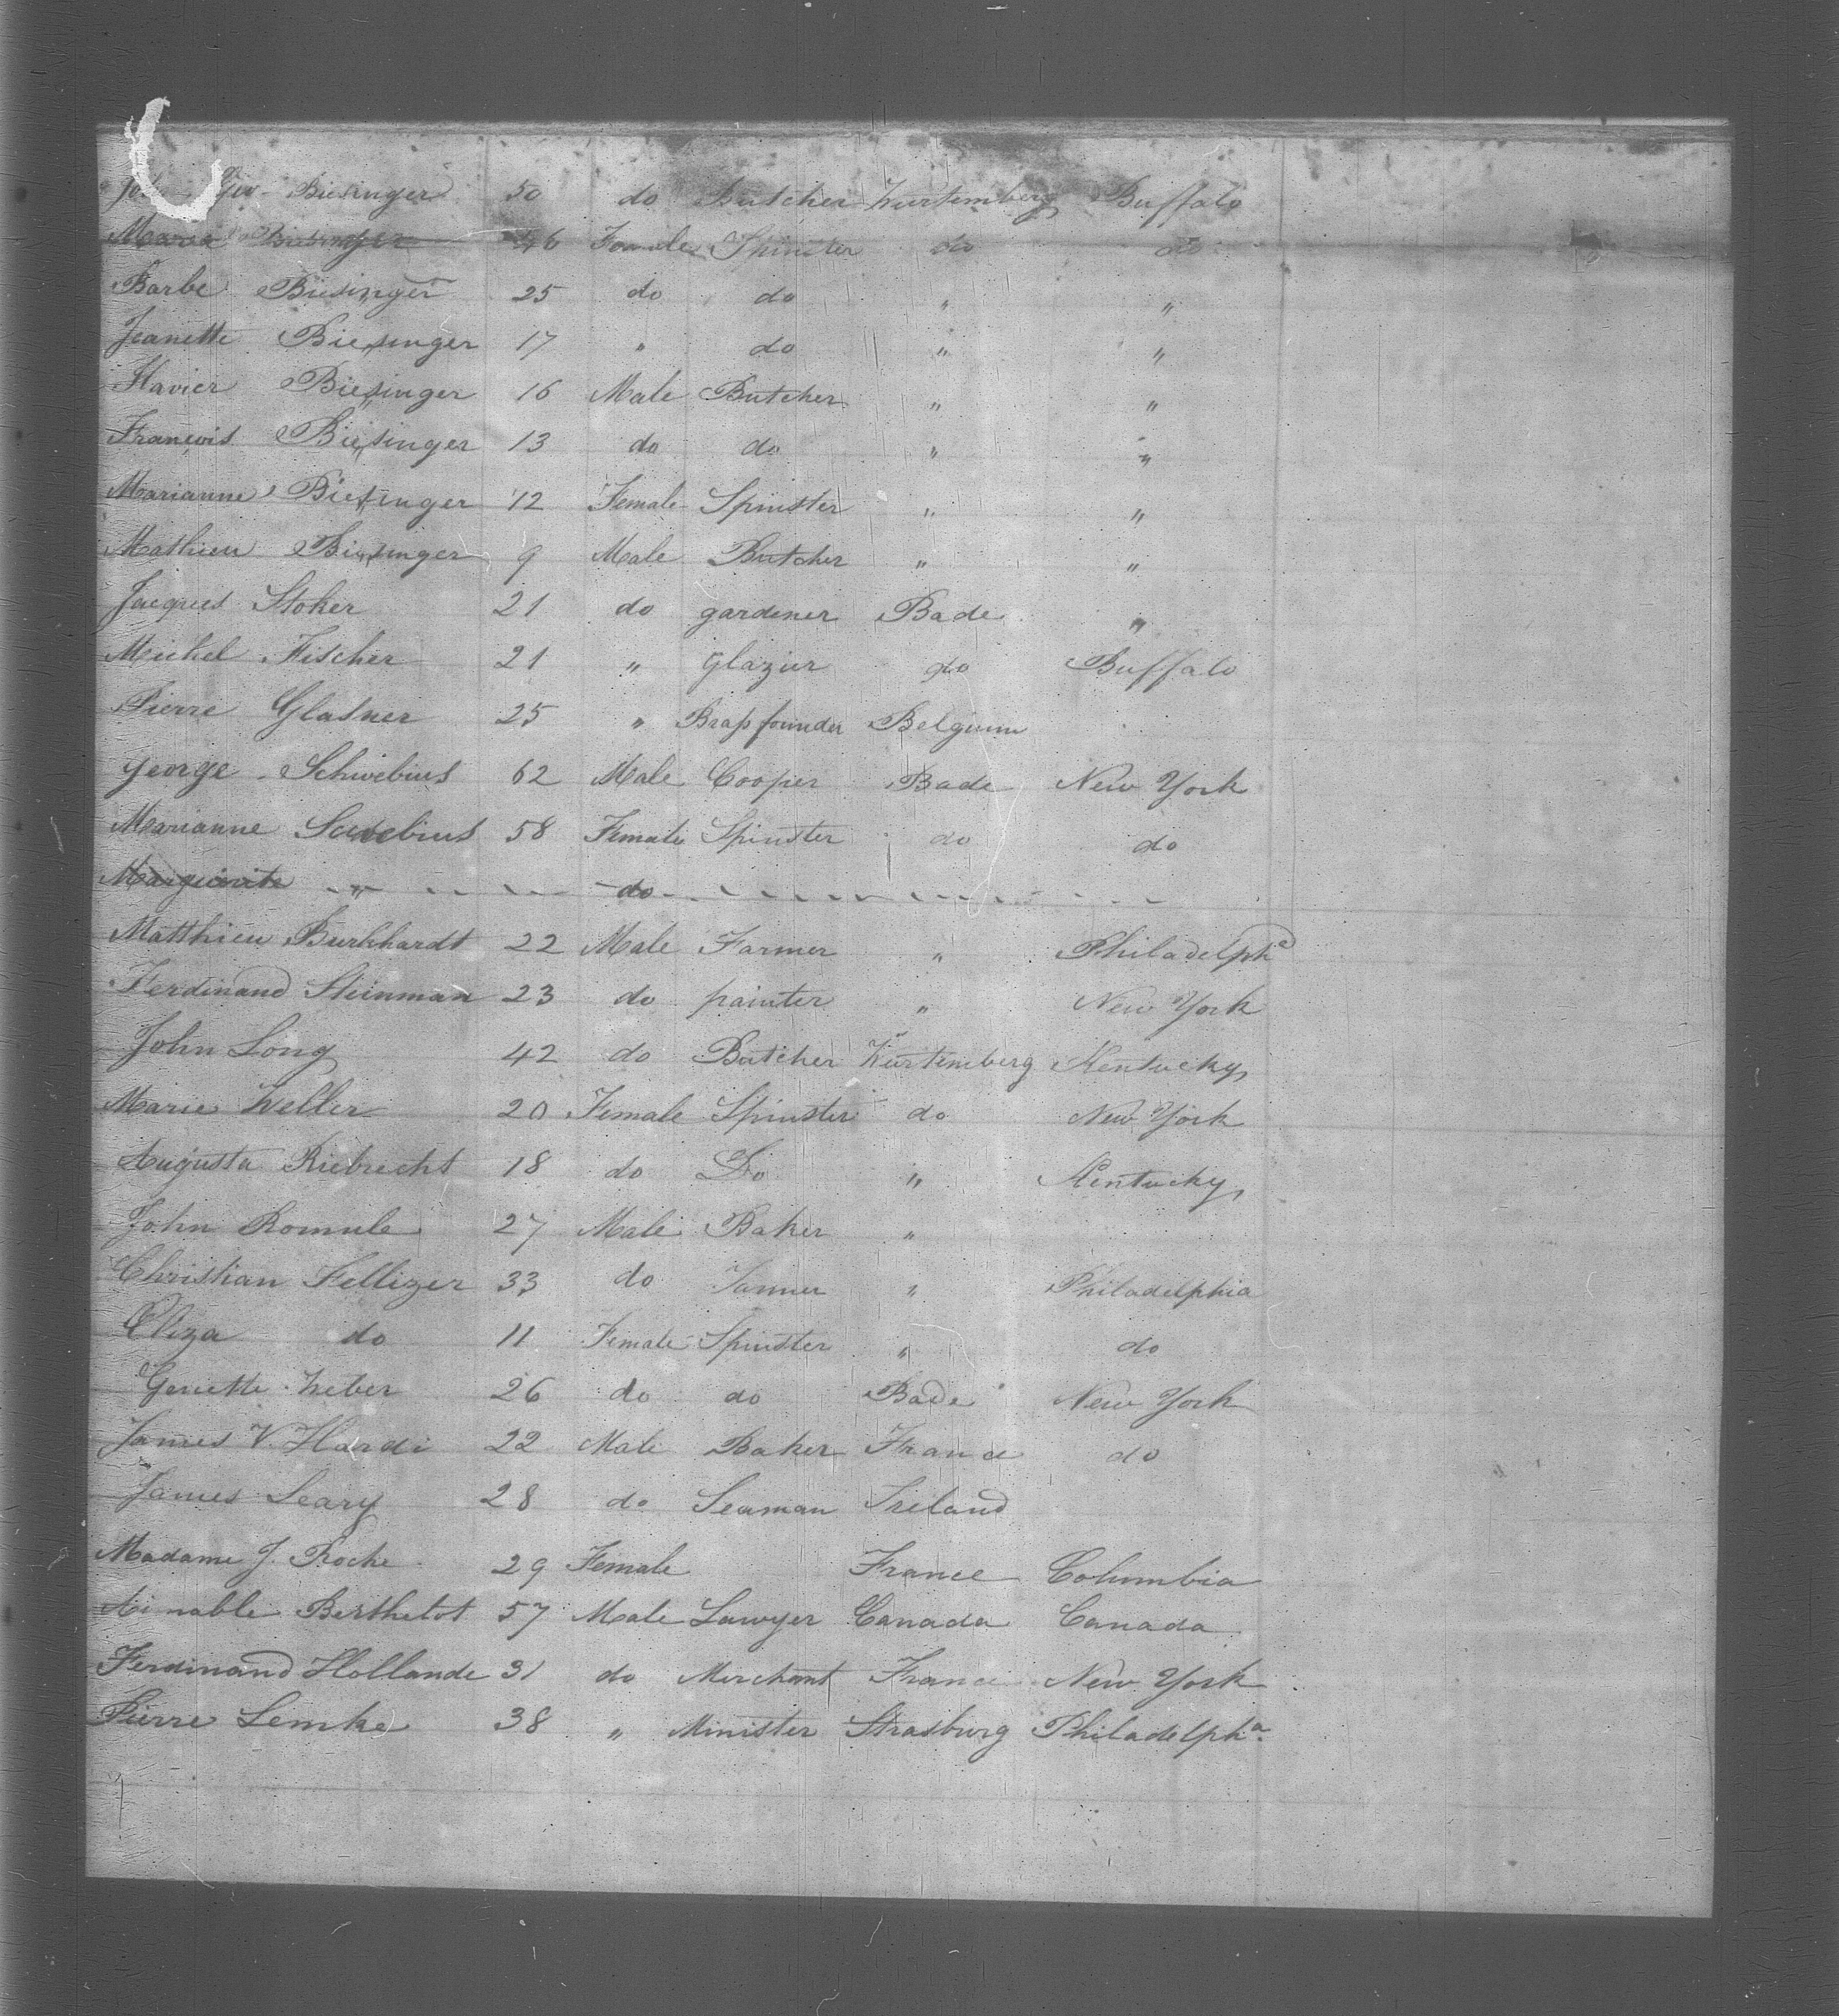 Geo Biesinger 50 do Butcher Wurtemberg Buffalo
Maria Biesinger 46 Female Spinster do do
Barbe Biesinger 25 do do " "
Jeanette Biesinger 17 " do " "
Xavier Biesinger 16 Male Butcher " "
François Biesinger 13 do do " "
Marianne Biesinger 12 Female Spinster " "
Mathieu Biesinger 9 Male Butcher " "
Jacques Stoker 21 do gardener Bade "
Michel Fischer 21 " glazier do Buffalo
Pierre Glasner 25 " Brassfounder Belgium
George Schwebius 62 Male Cooper Bade New York
Marianne Schwebius 58 Female Spinster do do
Marguerite " do
Matthieu Burkhardt 22 Male Farmer " Philadelpha
Ferdinand Steinman 23 do painter " New York
John Long 42 do Butcher Wurtemberg Kentucky
Marie Weller 20 Female Spinster do New York
Augusta Riebrecht 18 do Do " Kentucky
John Romule 27 Male Baker "
Christian Fellizer 33 do Tanner " Philadelphia
Eliza do 11 Female Spinster " do
Genette Weber 26 do do Bade New York
James V. Hardi 22 Male Baker France do
James Leary 28 do Seaman Ireland
Madame J. Roche 29 Female France Columbia
Aimable Berthelot 57 Male Lawyer Canada Canada
Ferdinand Hollande 31 do Merchant France New York
Pierre Lemke 38 " Minister Strasburg Philadelpha